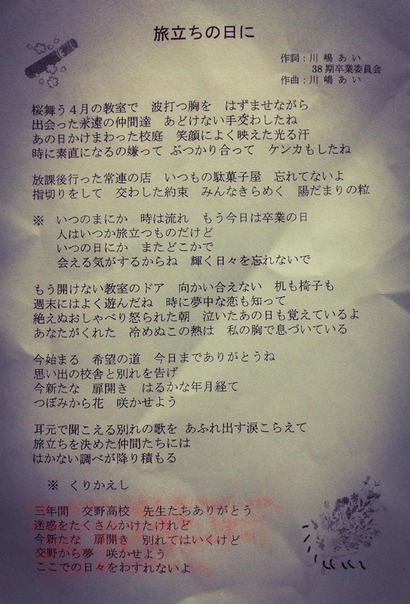 旅立ちの日に
作詞：川嶋あい
38期卒業委員会
作曲：川嶋あい
桜舞う４月の教室で　波打つ胸を　はずませながら
出会った永遠の仲間達　あどけない手変わしたね
あの日かけまわった校庭　笑顔によく映えた光る汗
時に素直になるの嫌って　ぶつかり合って　ケンカもしたね
放課後行った常連の店　いつもの駄菓子屋　忘れてないよ
指切りをして　交わした約束　みんなきらめく　陽だまりの粒
※　いつのまにか　時は流れ　もう今日は卒業の日
人はいつか旅立つものだけど
いつの日にか　またどこかで
会える気がするからね　輝く日々を忘れないで
もう開けない教室のドア　向かい合えない　机も椅子も
週末にはよく遊んだね　時に夢中な恋も知って
絶えぬおしゃべり怒られた朝　泣いたあの日も覚えているよ
あなたがくれた　冷めぬこの熱は　私の胸で息づいている
今始まる　希望の道　今日までありがとうね
思い出の校舎と別れを告げ
今新たな　扉開き　はるかな年月経て
つぼみから花　咲かせよう
耳元で聞こえる別れの歌を　あふれ出す涙こらえて
旅立ちを決めた仲間たちには
はかない調べが降り積もる
※　くりかえし
三年間　交野高校　先生たちありがとう
迷惑をたくさんかけたけれど
今新たな　扉開き　別れてはいくけど
交野から夢　咲かせよう
ここでの日々をわすれないよ